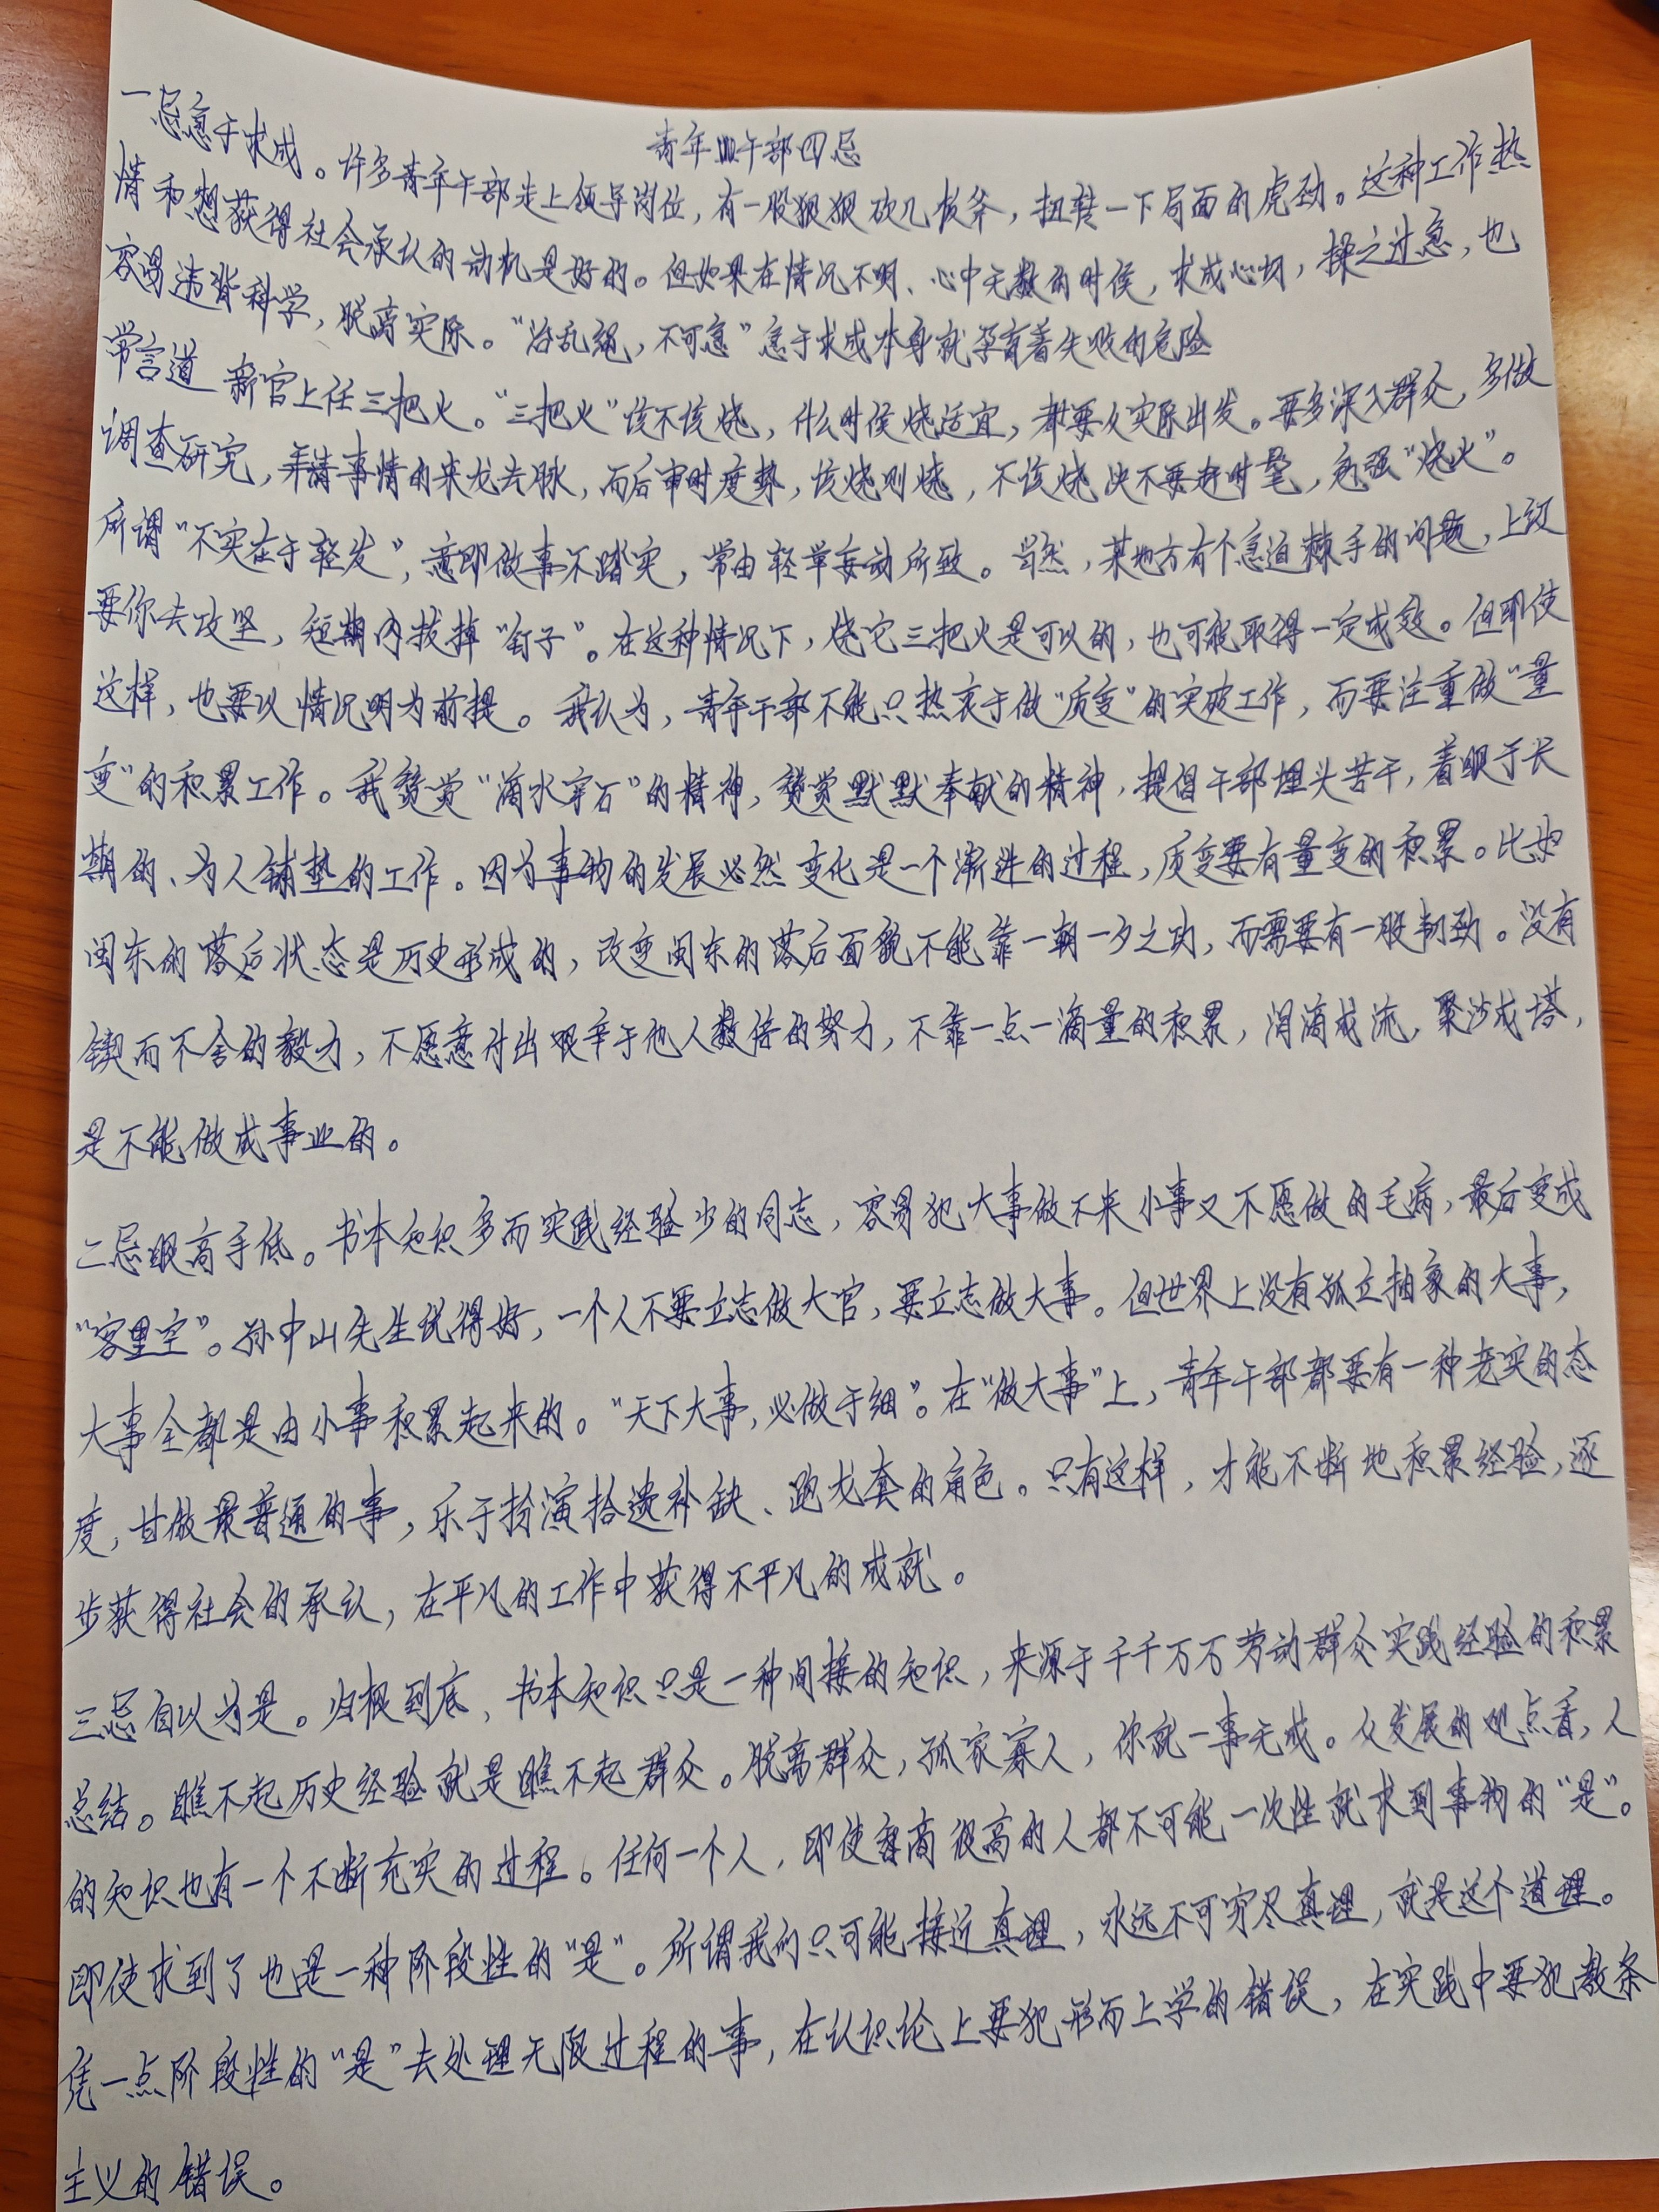 青年干部四忌
一忌急于求成。许多青年干部走上领导岗位，有一股狠狠砍几板斧，扭转一下局面的虎劲。这种工作热
情和想获得社会承认的动机是好的。但如果在情况不明、心中无数的时候，求成心切，操之过急，也
容易违背科学，脱离实际。“治乱绳，不可急”急于求成本身就孕育着失败的危险
常言道 新官上任三把火。“三把火”该不该烧，什么时侯烧适宜，都要从实际出发。要多深入群众，多做
调查研究，弄清事情的来龙去脉，而后审时度势，该烧则烧，不该烧决不要赶时髦，勉强“烧火”。
所谓“不实在于轻发”，意即做事不踏实，常由轻举妄动所致。当然，某地方有个急迫棘手的问题，上级
要你去攻坚，短期内拔掉“钉子”。在这种情况下，烧它三把火是可以的，也可能取得一定成效。但即使
这样，也要以情况明为前提。我认为，青年干部不能只热衷于做“质变”的突破工作，而要注重做“量
变”的积累工作。我赞赏“滴水穿石”的精神，赞赏默默奉献的精神，提倡干部埋头苦干，着眼于长
期的、为人铺垫的工作。因为事物的发展必然变化是一个渐进的过程，质变要有量变的积累。比如
闽东的落后状态是历史形成的，改变闽东的落后面貌不能靠一朝一夕之功，而需要有一股韧劲。没有
锲而不舍的毅力，不愿意付出艰辛于他人数倍的努力，不靠一点一滴量的积累，涓滴成流，聚沙成塔，
是不能做成事业的。
二忌眼高手低。书本知识多而实践经验少的同志，容易犯大事做不来小事又不愿做的毛病，最后变成
“客里空”。孙中山先生说得好，一个人不要立志做大官，要立志做大事。但世界上没有孤立抽象的大事，
大事全都是由小事积累起来的。“天下大事，必做于细”。在“做大事”上，青年干部都要有一种老实的态
度，甘做最普通的事，乐于扮演拾遗补缺、跑龙套的角色。只有这样，才能不断地积累经验，逐
步获得社会的承认，在平凡的工作中获得不平凡的成就。
三忌自以为是。归根到底，书本知识只是一种间接的知识，来源于千千万万劳动群众实践经验的积累
总结。瞧不起历史经验就是瞧不起群众。脱离群众，孤家寡人，你就一事无成。从发展的观点看，人
的知识也有一个不断充实的过程。任何一个人，即使智商很高的人都不可能一次性就求到事物的“是”。
即使求到了也是一种阶段性的“是”。所谓我们只可能接近真理，永远不可穷尽真理，就是这个道理。
凭一点阶段性的“是”去处理无限过程的事，在认识论上要犯形而上学的错误，在实践中要犯教条
主义的错误。